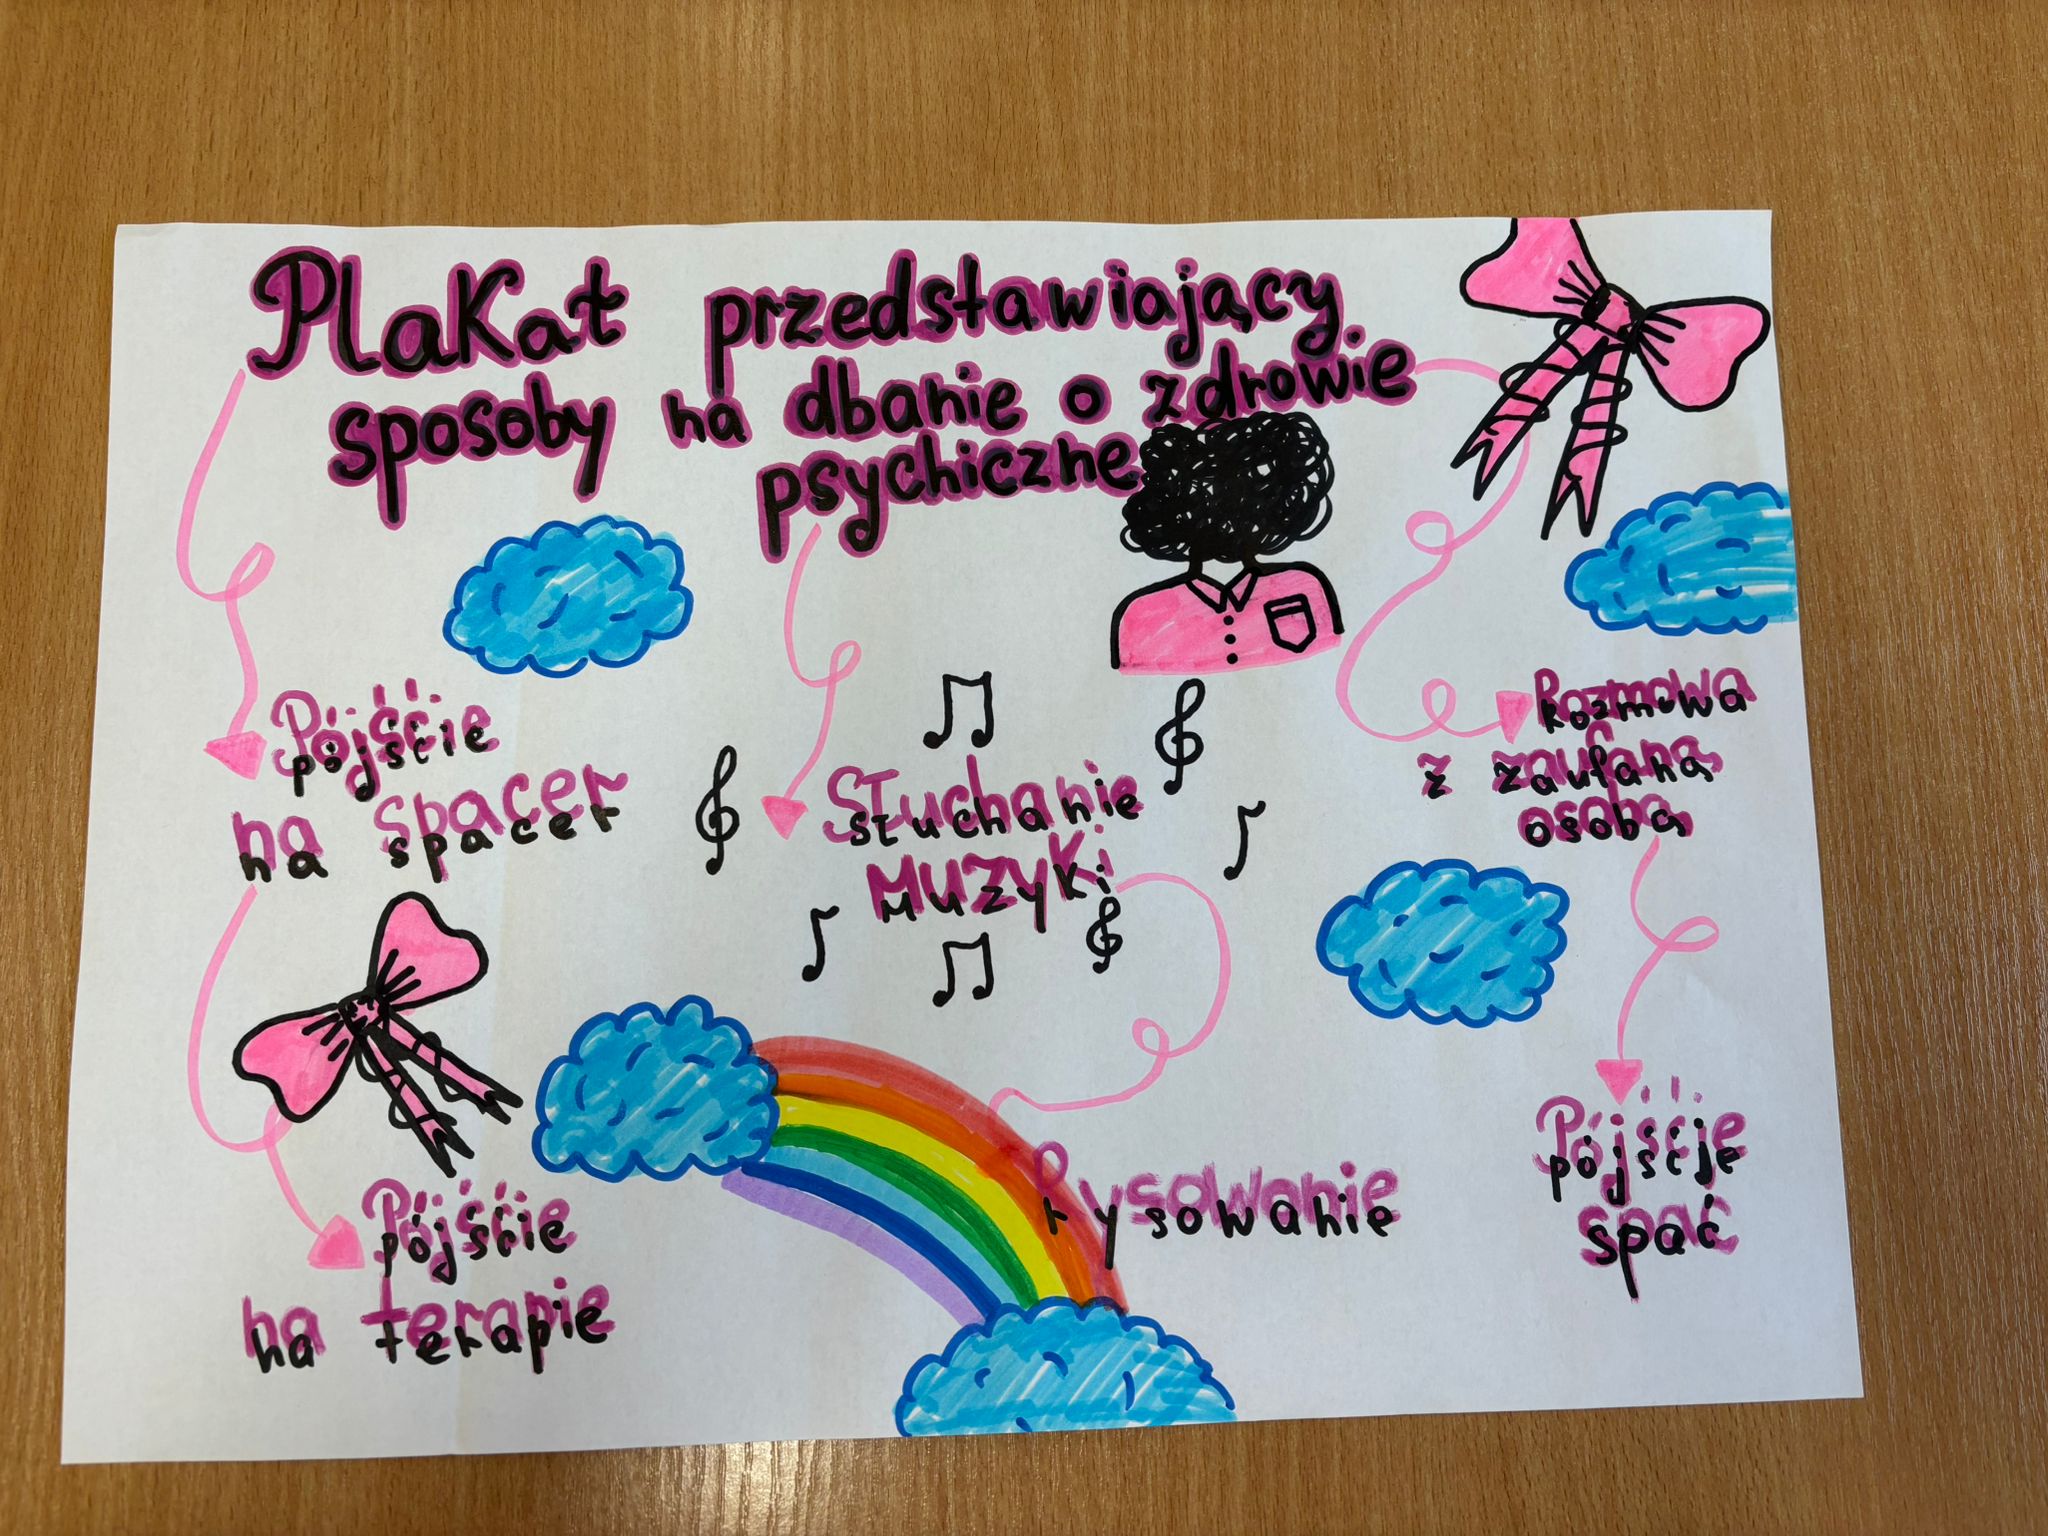 Plakat przedstawiający
sposoby na dbanie o zdrowie
psychiczne
Pójście
na spacer
Słuchanie
Muzyki
Rozmowa
z zaufaną
osobą
Pójście
na terapie
Rysowanie
Pójście
spać